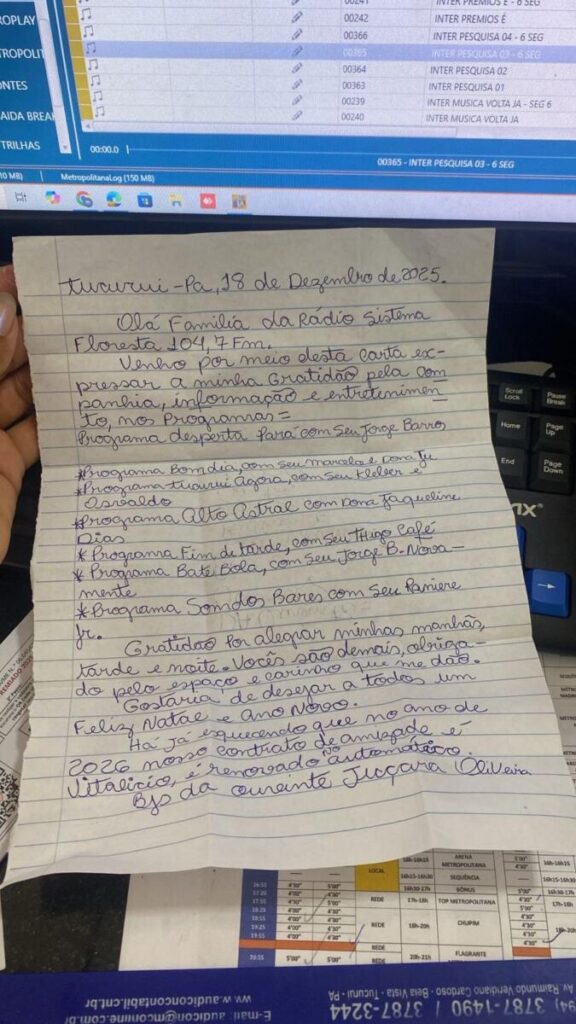 ROPLAY
TROPOLIT
ONTES
AIDA BREAK
TRILHAS
00241 INTER PREMIOS E - 6 SEG
00242 INTER PREMIOS É
00366 INTER PESQUISA 04 - 6 SEG
00365 INTER PESQUISA 03 - 6 SEG
00364 INTER PESQUISA 02
00363 INTER PESQUISA 01
00239 INTER MUSICA VOLTA JA - SEG 6
00240 INTER MUSICA VOLTA JA
00:00.0
00365 - INTER PESQUISA 03 - 6 SEG
10 MB) MetropolitanaLog (150 MB)
Tucuruí-Pa, 18 de Dezembro de 2025.
Olá Familia da Rádio Sistema
Floresta 104,7 Fm.
Venho por meio desta carta ex-
pressar a minha Gratidão pela com
panhia, informação e entretenimen
to, nos Programas=
Programa desperta Pará com Seu Jorge Barros
*Programa Bom dia, com seu Marcelo e Dona Ju
*Programa Tucuruí Agora, com seu Kleber e
Osvaldo
*Programa Alto Astral com Dona Jaqueline
Dias
* Programa Fim de tarde, com Seu Thugo Café
* Programa Bate Bola, com Seu Jorge B. Nova-
mente
* Programa Som dos Bares com Seu Raniere
Jr.
Gratidão por alegrar minhas manhãs,
tarde e noite. Vocês são demais, obriga-
do pelo espaço e carinho que me dão.
Gostaria de desejar a todos um
Feliz Natal e Ano Novo.
Há já esquecendo que no ano de
2026 nosso contrato de amizade é
Vitalício, é renovado no automático.
Bjs da ouvinte Juçara Oliveira
Scroll Lock
Pause Break
Home
Page Up
End
Page Down
LOCAL
REDE
REDE
REDE
REDE
16h-16h15 ARENA METROPOLITANA
16h15-16h30 SEQUÊNCIA
16h30-17h BÔNUS
17h-18h TOP METROPOLITANA
18h-20h CHUPIM
20h-21h FLAGRANTE
16:55 4'30" 5'00"
17:20 4'00"
17:55 4'30" 5'00"
18:25
18:55
19:25
19:55
20:55 5'00"
Av. Raimundo Veridiano Cardoso - Bela Vista - Tucuruí - PA
94) 3787-1490 / 3787-3244
ww.audiconcontabil.cnt.br
E-mail: audicon@mconline.com.br